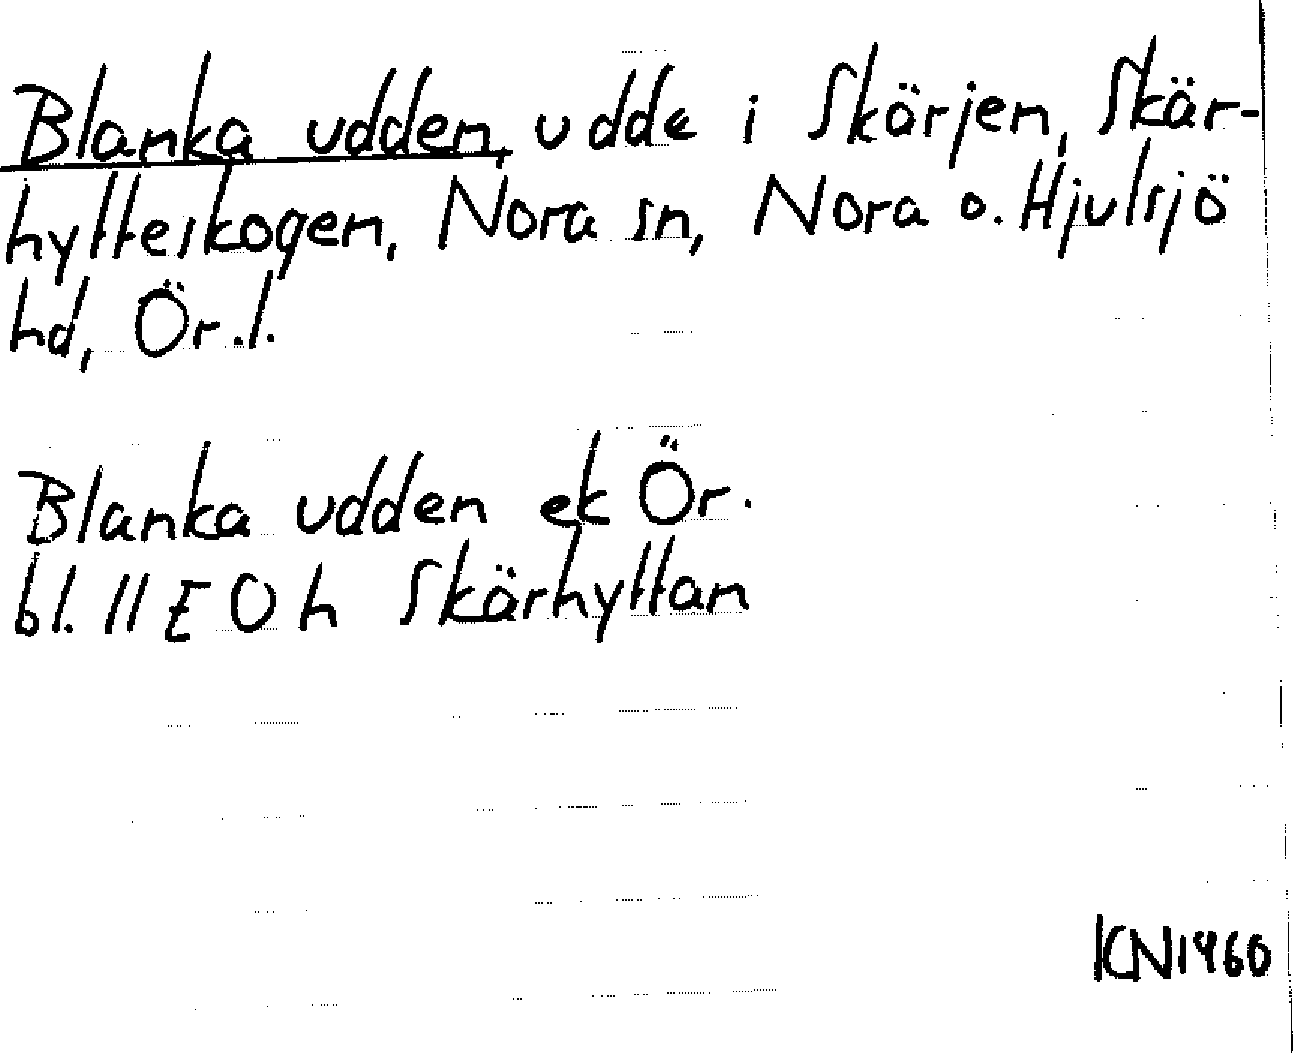 Blanka udden, udde i Skärjen, Skär-
hytteskogen, Nora sn, Nora o. Hjulsjö
hd, Ör.l.
Blanka udden ek Ör.
bl. 11 E O h Skärhyttan
KN1960